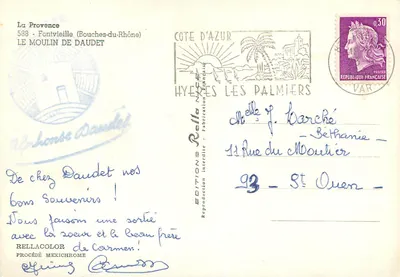 La Provence
593 - Fontvieille (Bouches-du-Rhône)
LE MOULIN DE DAUDET
Alphonse Daudet
De chez Daudet nos
bons Souvenirs !
Nous faisons une sortie
avec la soeur et le beau frère
de Carmen!
RELLACOLOR
PROCÉDÉ MEXICHROME
EDITIONS Rella NICE
Reproduction interdite
COTE D'AZUR
HYERES LES PALMIERS
0,30
REPUBLIQUE FRANÇAISE
VAR
Melle J. Marché
Béthanie
11 Rue du Moutier
93 - St Ouen